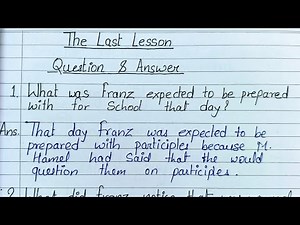 The Last Lesson
Question & Answer
1. What was Franz expected to be prepared
with for School that day?
Ans. That day Franz was expected to be
prepared with participles because M.
Hamel had said that the would
question them on participles.
2. What did Franz notice that was